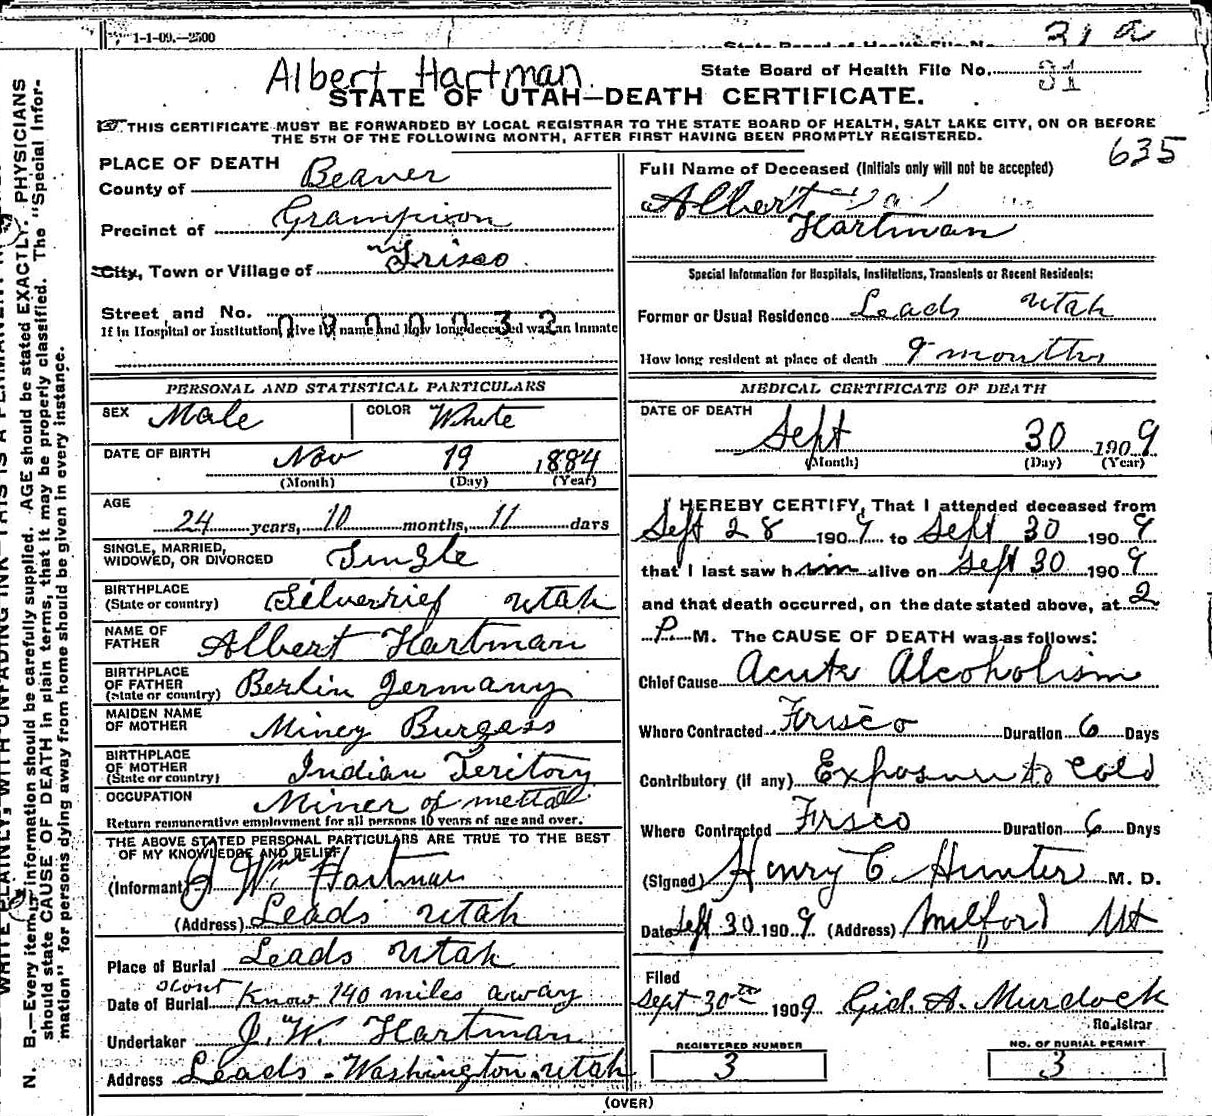 1-1-09.—2500
31 a
Albert Hartman
State Board of Health File No. 31
STATE OF UTAH—DEATH CERTIFICATE.
THIS CERTIFICATE MUST BE FORWARDED BY LOCAL REGISTRAR TO THE STATE BOARD OF HEALTH, SALT LAKE CITY, ON OR BEFORE
THE 5TH OF THE FOLLOWING MONTH, AFTER FIRST HAVING BEEN PROMPTLY REGISTERED.
635
PLACE OF DEATH
County of Beaver
Precinct of Grampion
City, Town or Village of Frisco
Street and No.
If in Hospital or Institution, give its name and how long deceased was an inmate
PERSONAL AND STATISTICAL PARTICULARS
SEX Male COLOR White
DATE OF BIRTH Nov 19 1884
(Month) (Day) (Year)
AGE
24 years, 10 months, 11 days
SINGLE, MARRIED,
WIDOWED, OR DIVORCED Single
BIRTHPLACE
(State or country) Silverrief Utah
NAME OF
FATHER Albert Hartman
BIRTHPLACE
OF FATHER
(State or country) Berlin Germany
MAIDEN NAME
OF MOTHER Miney Burgess
BIRTHPLACE
OF MOTHER
(State or country) Indian Teritory
OCCUPATION Miner of mettal
Return remunerative employment for all persons 10 years of age and over.
THE ABOVE STATED PERSONAL PARTICULARS ARE TRUE TO THE BEST
OF MY KNOWLEDGE AND BELIEF
(Informant) J Wm Hartman
(Address) Leads Utah
Place of Burial Leads Utah
Date of Burial dont Know 140 miles away
Undertaker J. W. Hartman
Address Leads - Washington Utah
Full Name of Deceased (Initials only will not be accepted)
Albert
Hartman
Special Information for Hospitals, Institutions, Transients or Recent Residents:
Former or Usual Residence Leads Utah
How long resident at place of death 9 months
MEDICAL CERTIFICATE OF DEATH
DATE OF DEATH
Sept 30 1909
(Month) (Day) (Year)
I HEREBY CERTIFY, That I attended deceased from
Sept 28 1909 to Sept 30 1909
that I last saw him alive on Sept 30 1909
and that death occurred, on the date stated above, at 2
P. M. The CAUSE OF DEATH was as follows:
Chief Cause Acute Alcoholism
Where Contracted Frisco Duration 6 Days
Contributory (if any) Exposure to cold
Where Contracted Frsco Duration 6 Days
(Signed) Henry C Hunter M. D.
Date Sept 30 1909 (Address) Milford Ut
Filed
Sept 30th 1909 Gid. A. Murdock
Registrar
REGISTERED NUMBER
3
NO. OF BURIAL PERMIT
3
(OVER)
N. B.—Every item of information should be carefully supplied. AGE should be stated EXACTLY. PHYSICIANS
should state CAUSE OF DEATH in plain terms, that it may be properly classified. The "Special Infor-
mation" for persons dying away from home should be given in every instance.